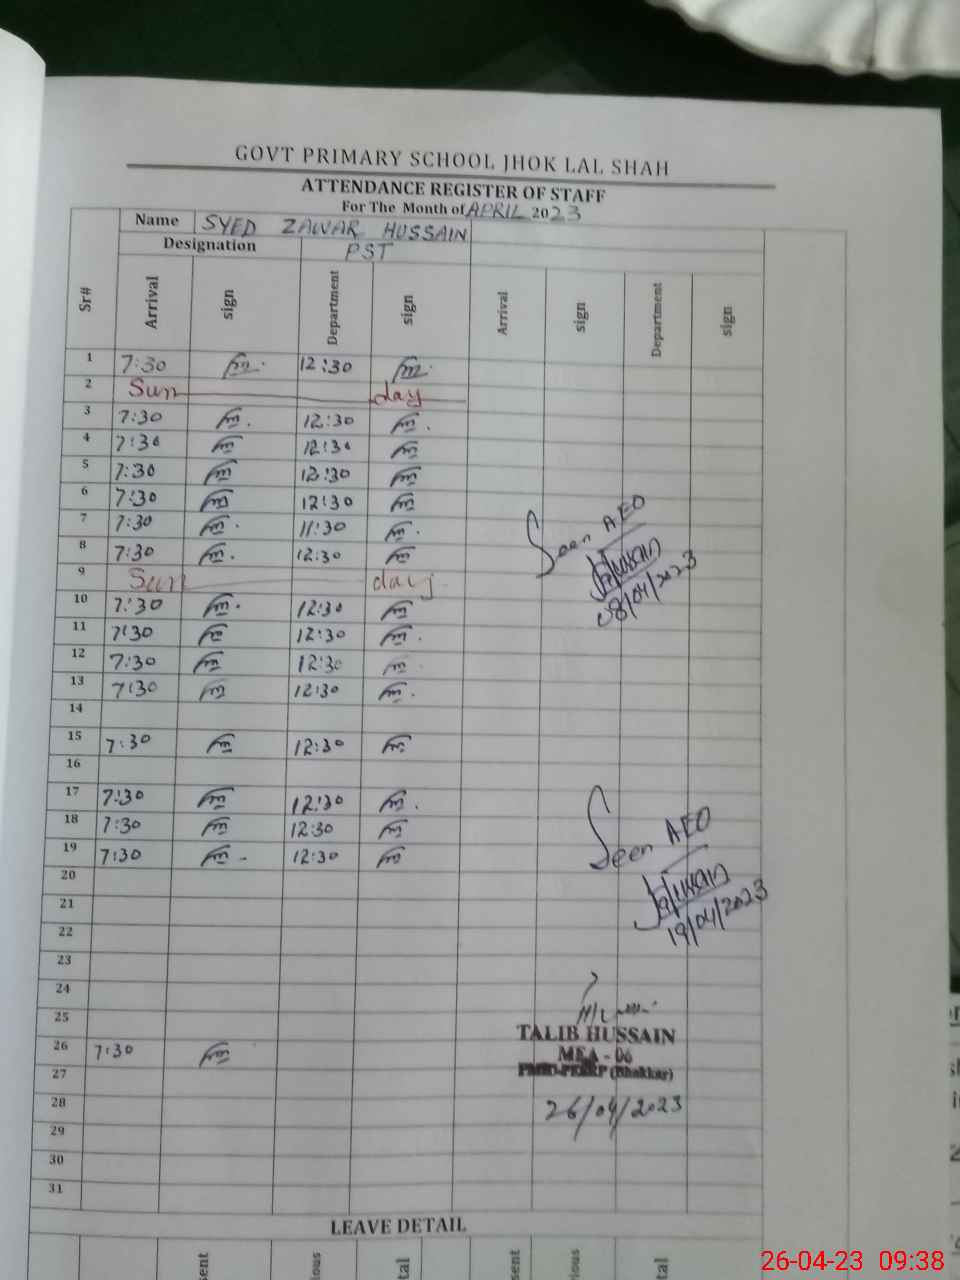 GOVT PRIMARY SCHOOL JHOK LAL SHAH
ATTENDANCE REGISTER OF STAFF
For The Month of APRIL 2023
Name SYED ZAWAR HUSSAIN
Designation PST
Sr# Arrival sign Department sign Arrival sign Department sign
1 7:30 12:30
2 Sun day
3 7:30 12:30
4 7:30 12:30
5 7:30 12:30
6 7:30 12:30
7 7:30 11:30
8 7:30 12:30
9 Sun day
10 7:30 12:30
11 7:30 12:30
12 7:30 12:30
13 7:30 12:30
14
15 7:30 12:30
16
17 7:30 12:30
18 7:30 12:30
19 7:30 12:30
20
21
22
23
24
25
26 7:30
27
28
29
30
31
Seen AEO
08/04/2023
Seen AEO
19/04/2023
TALIB HUSSAIN
MEA - 06
(Bhakkar)
26/04/2023
LEAVE DETAIL
26-04-23 09:38